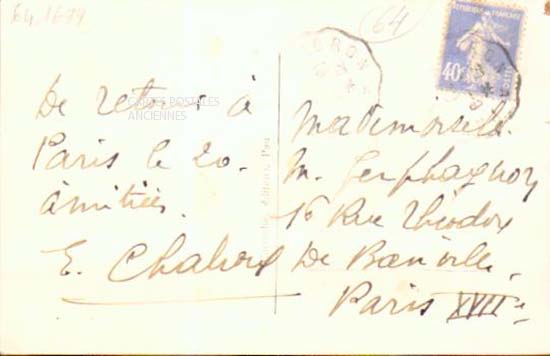 64 1699
64
RÉPUBLIQUE FRANÇAISE
40c
De retour à
Paris le 20.
Amitiés.
E. Chabert
CARTES POSTALES
ANCIENNES
Mademoiselle
M. Gerphagnon
16 Rue Théodore
De Banville.
Paris XVIIe